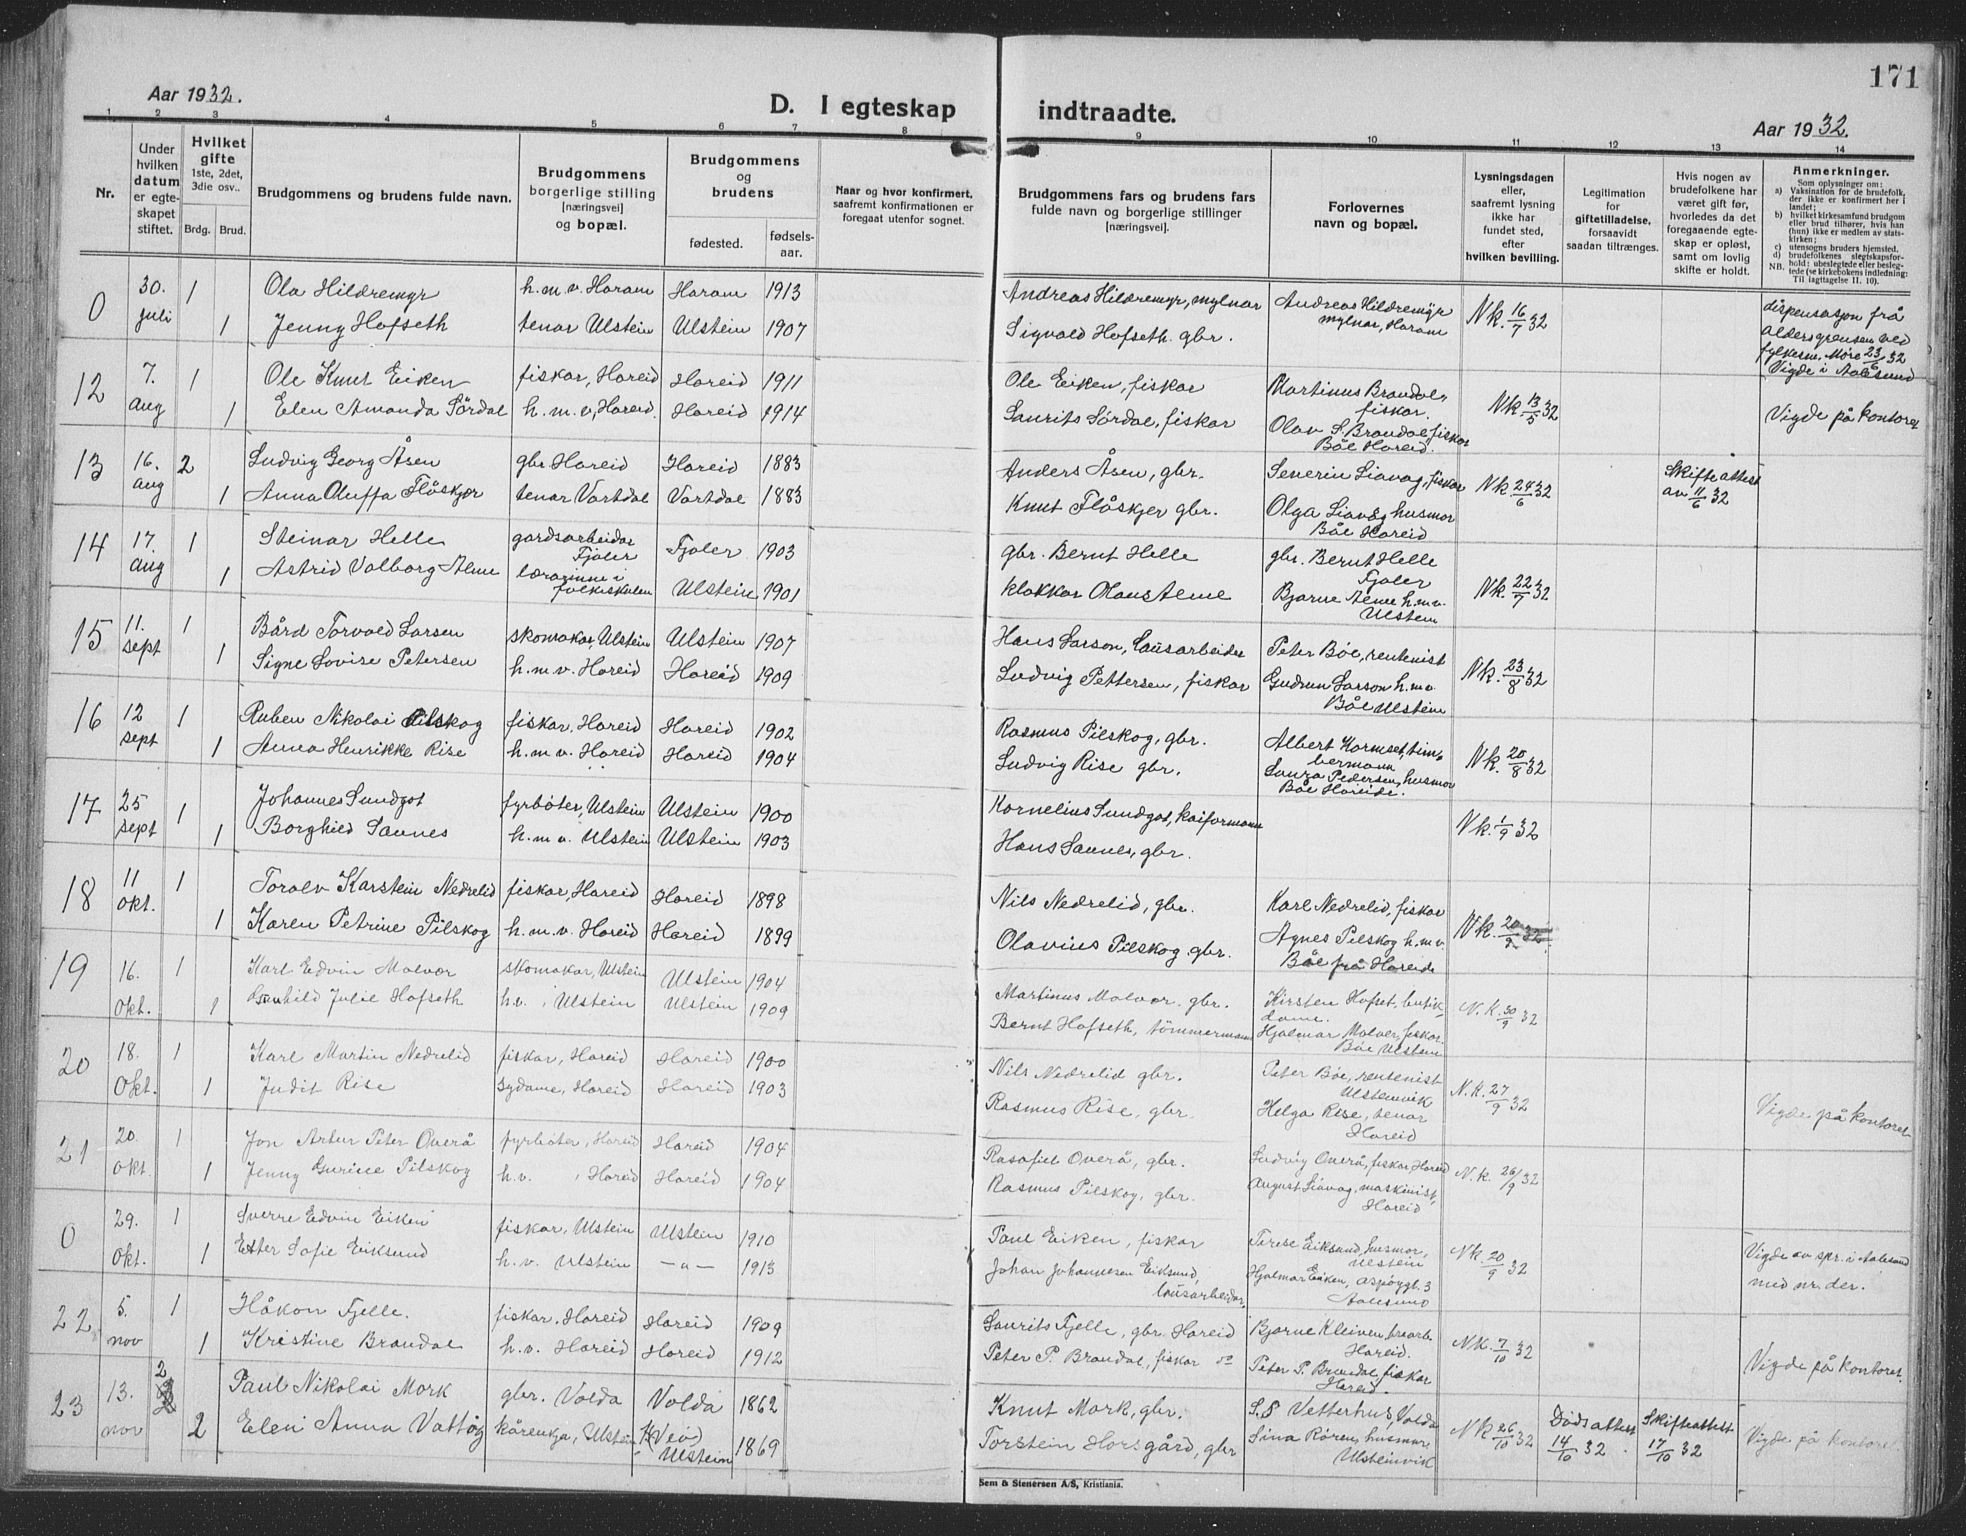 171
Aar 1932.
D. I egteskap indtraadte.
Aar 1932.
1 2 3 4 5 6 7 8 9 10 11 12 13 14
Nr.
Under hvilken datum er egte-skapet stiftet.
Hvilket gifte 1ste, 2det, 3die osv..
Brdg. Brud.
Brudgommens og brudens fulde navn.
Brudgommens borgerlige stilling [næringsvei] og bopæl.
Brudgommens og brudens
fødested. fødsels-aar.
Naar og hvor konfirmert, saafremt konfirmationen er foregaat utenfor sognet.
Brudgommens fars og brudens fars fulde navn og borgerlige stillinger [næringsvei].
Forlovernes navn og bopæl.
Lysningsdagen eller, saafremt lysning ikke har fundet sted, efter hvilken bevilling.
Legitimation for giftetilladelse, forsaavidt saadan tiltrænges.
Hvis nogen av brudefolkene har været gift før, hvorledes da det foregaaende egte-skap er opløst, samt om lovlig skifte er holdt.
Anmerkninger.
Som oplysninger om:
a) Vaksination for de brudefolk, der ikke er konfirmert her i landet;
b) hvilket kirkesamfund brudgom eller brud tilhører, hvis han (hun) ikke er medlem av stats-kirken;
c) utensogns bruders hjemsted.
d) brudefolkenes slegtskapsfor-hold: ubeslegtede eller besleg-tede (se kirkebokens indledning: Til iagttagelse II. 10).
NB.
0 30. juli 1 Ola Hildremyr h.m.v. Haram Haram 1913 Andreas Hildremyr, mylnar Andreas Hildremyr mylnar, Haram Nk. 16/7 32 dispensasjon frå aldersgrensen ved fylkesm. Møre 23/6 32 Vigde i Aalesund
1 Jenny Hofseth tenar Ulstein Ulstein 1907 Sigvald Hofseth. gbr.
12 7. Aug 1 Ole Knut Eiken fiskar, Hareid Hareid 1911 Ole Eiken, fiskar Martinus Brandal, fiskar. Nk. 13/5 32 Vigde på kontoret
1 Elen Amanda Sördal h.m.v, Hareid. Hareid 1914 Laurits Sørdal, fiskar Olav S. Brandal fiskar Båe Hareid.
13 16. aug 2 Ludvig Georg Åsen gbr Hareid Hareid 1883 Anders Åsen, gbr. Severin Liavag, fiskar Nk. 24/6 32 Skifteattest av 11/6 32
1 Anna Oluffa Flåskjær tenar Vartdal Vartdal 1883 Knut Flåskjer gbr. Olga Liavåg husmor Båe Hareid
14 17. Aug 1 Steinar Helle gardsarbeidar Fjaler Fjaler 1903 gbr. Bernt Helle gbr. Bernt Helle Fjaler Nk. 22/7 32
1 Astrid Valborg Alme lærarinne i folkeskulen Ulstein 1901 klokkar Olaus Alme Bjarne Alme h.m.v. Ulstein
15 11. sept 1 Bård Torvald Larsen skomakar, Ulstein Ulstein 1907 Hans Larson, lausarbeider Peter Böe, rentenist Nk. 23/8 32
1 Signe Lovise Petersen h.m.v. Hareid Hareid 1909 Ludvig Pettersen, fiskar Gudrun Larson h.m.v. Båe Ulstein
16 12 sept 1 Ruben Nikolai Pilskog fiskar, Hareid Hareid 1902 Rasmus Pilskog, gbr. Albert Kormset, tim-bermann Nk. 20/8 32
1 Anna Henrikke Rise h.m.v. Hareid Hareid 1904 Ludvig Rise gbr. Laura Pedersen, husmor Båe Hareide.
17 25 sept 1 Johannes Sundgot fyrbøter, Ulstein Ulstein 1900 Kornelius Sundgot, kaiformann Nk. 1/9 32
1 Borghied Saunes h.m.v. Ulstein Ulstein 1903 Hans Saunes, gbr.
18 11 okt. 1 Toralv Karstein Nedrelid fiskar, Hareid Hareid 1898 Nils Nedrelid, gbr. Karl Nedrelid, fiskar Nk. 20/9 32.
1 Karen Petrine Pilskog h.m.v. Hareid Hareid 1899 Olavius Pilskog gbr. Agnes Pilskog h.m.v. Båe frå Hareide
19 16. okt. 1 Karl Edvin Malvor skomakar, Ulstein Ulstein 1904 Martinus Malvor. gbr. Kirsten Hofset, butik-dame. N.K. 30/9 32
1 Gunhild Julie Hofseth h.v. Ulstein Ulstein 1909 Bernt Hofseth, tömmermann Hjalmar Malver, fiskar. Båe Ulstein
20 18. Okt. 1 Karl Martin Nedrelid fiskar, Hareid Hareid 1900 Nils Nedrelid gbr. Peter Böe, rentenist Ulsteinvik N.K. 27/9 32 Vigde på kontoret
1 Judit Rise sydame, Hareid Hareid 1903 Rasmus Rise, gbr. Helga Rise, tenar Hareid
21 20. okt. 1 Jon Artur Peter Overå fyrbøter, Hareid Hareid 1904 Rasafiel Overå, gbr. Ludvig Overå, fiskar, Hareid N.K. 26/9 32
1 Jenny Gurine Pilskog h.v. , Hareid Hareid 1904 Rasmus Pilskog, gbr. August Liavag, maskinist, Hareid
0 29. okt. 1 Sverre Edvin Eiken fiskar, Ulstein Ulstein 1910 Paul Eiken, fiskar Terese Eiksund, husmor, Ulstein NK. 20/9 32 Vigde av spr. i Aalesund med nr. der.
1 Ester Sofie Eiksund h.v. Ulstein -"- 1913 Johan Johannesen Eiksund, lausarbeidar Hjalmar Eiken, Aspøygt. 3 Aalesund
22 5. nov 1 Håkon Fjelle. fiskar, Hareid Hareid 1909 Laurits Fjelle, gbr. Hareid Bjarne Kleiven, Hareid. NK. 7/10 32 Vigde på kontoret.
1 Kristine Brandal h.v. Hareid Hareid 1912 Peter P. Brandal, fiskar do Peter P. Brandal, fiskar Hareid.
23 13. nov 2 Paul Nikolai Mork gbr. Volda Volda 1862 Knut Mork, gbr. Vetterhus, Volda NK 26/10 32 Dødsattest 14/10 32. Skifteattest 17/10 32 Vigde på kontoret.
2 Elen Anna Vattög kårenkja, Ulstein Ulstein 1869 Torstein Horsgård, gbr Sina Røren, husmor Ulsteinvik
Sem & Stenersen A/S, Kristiania.